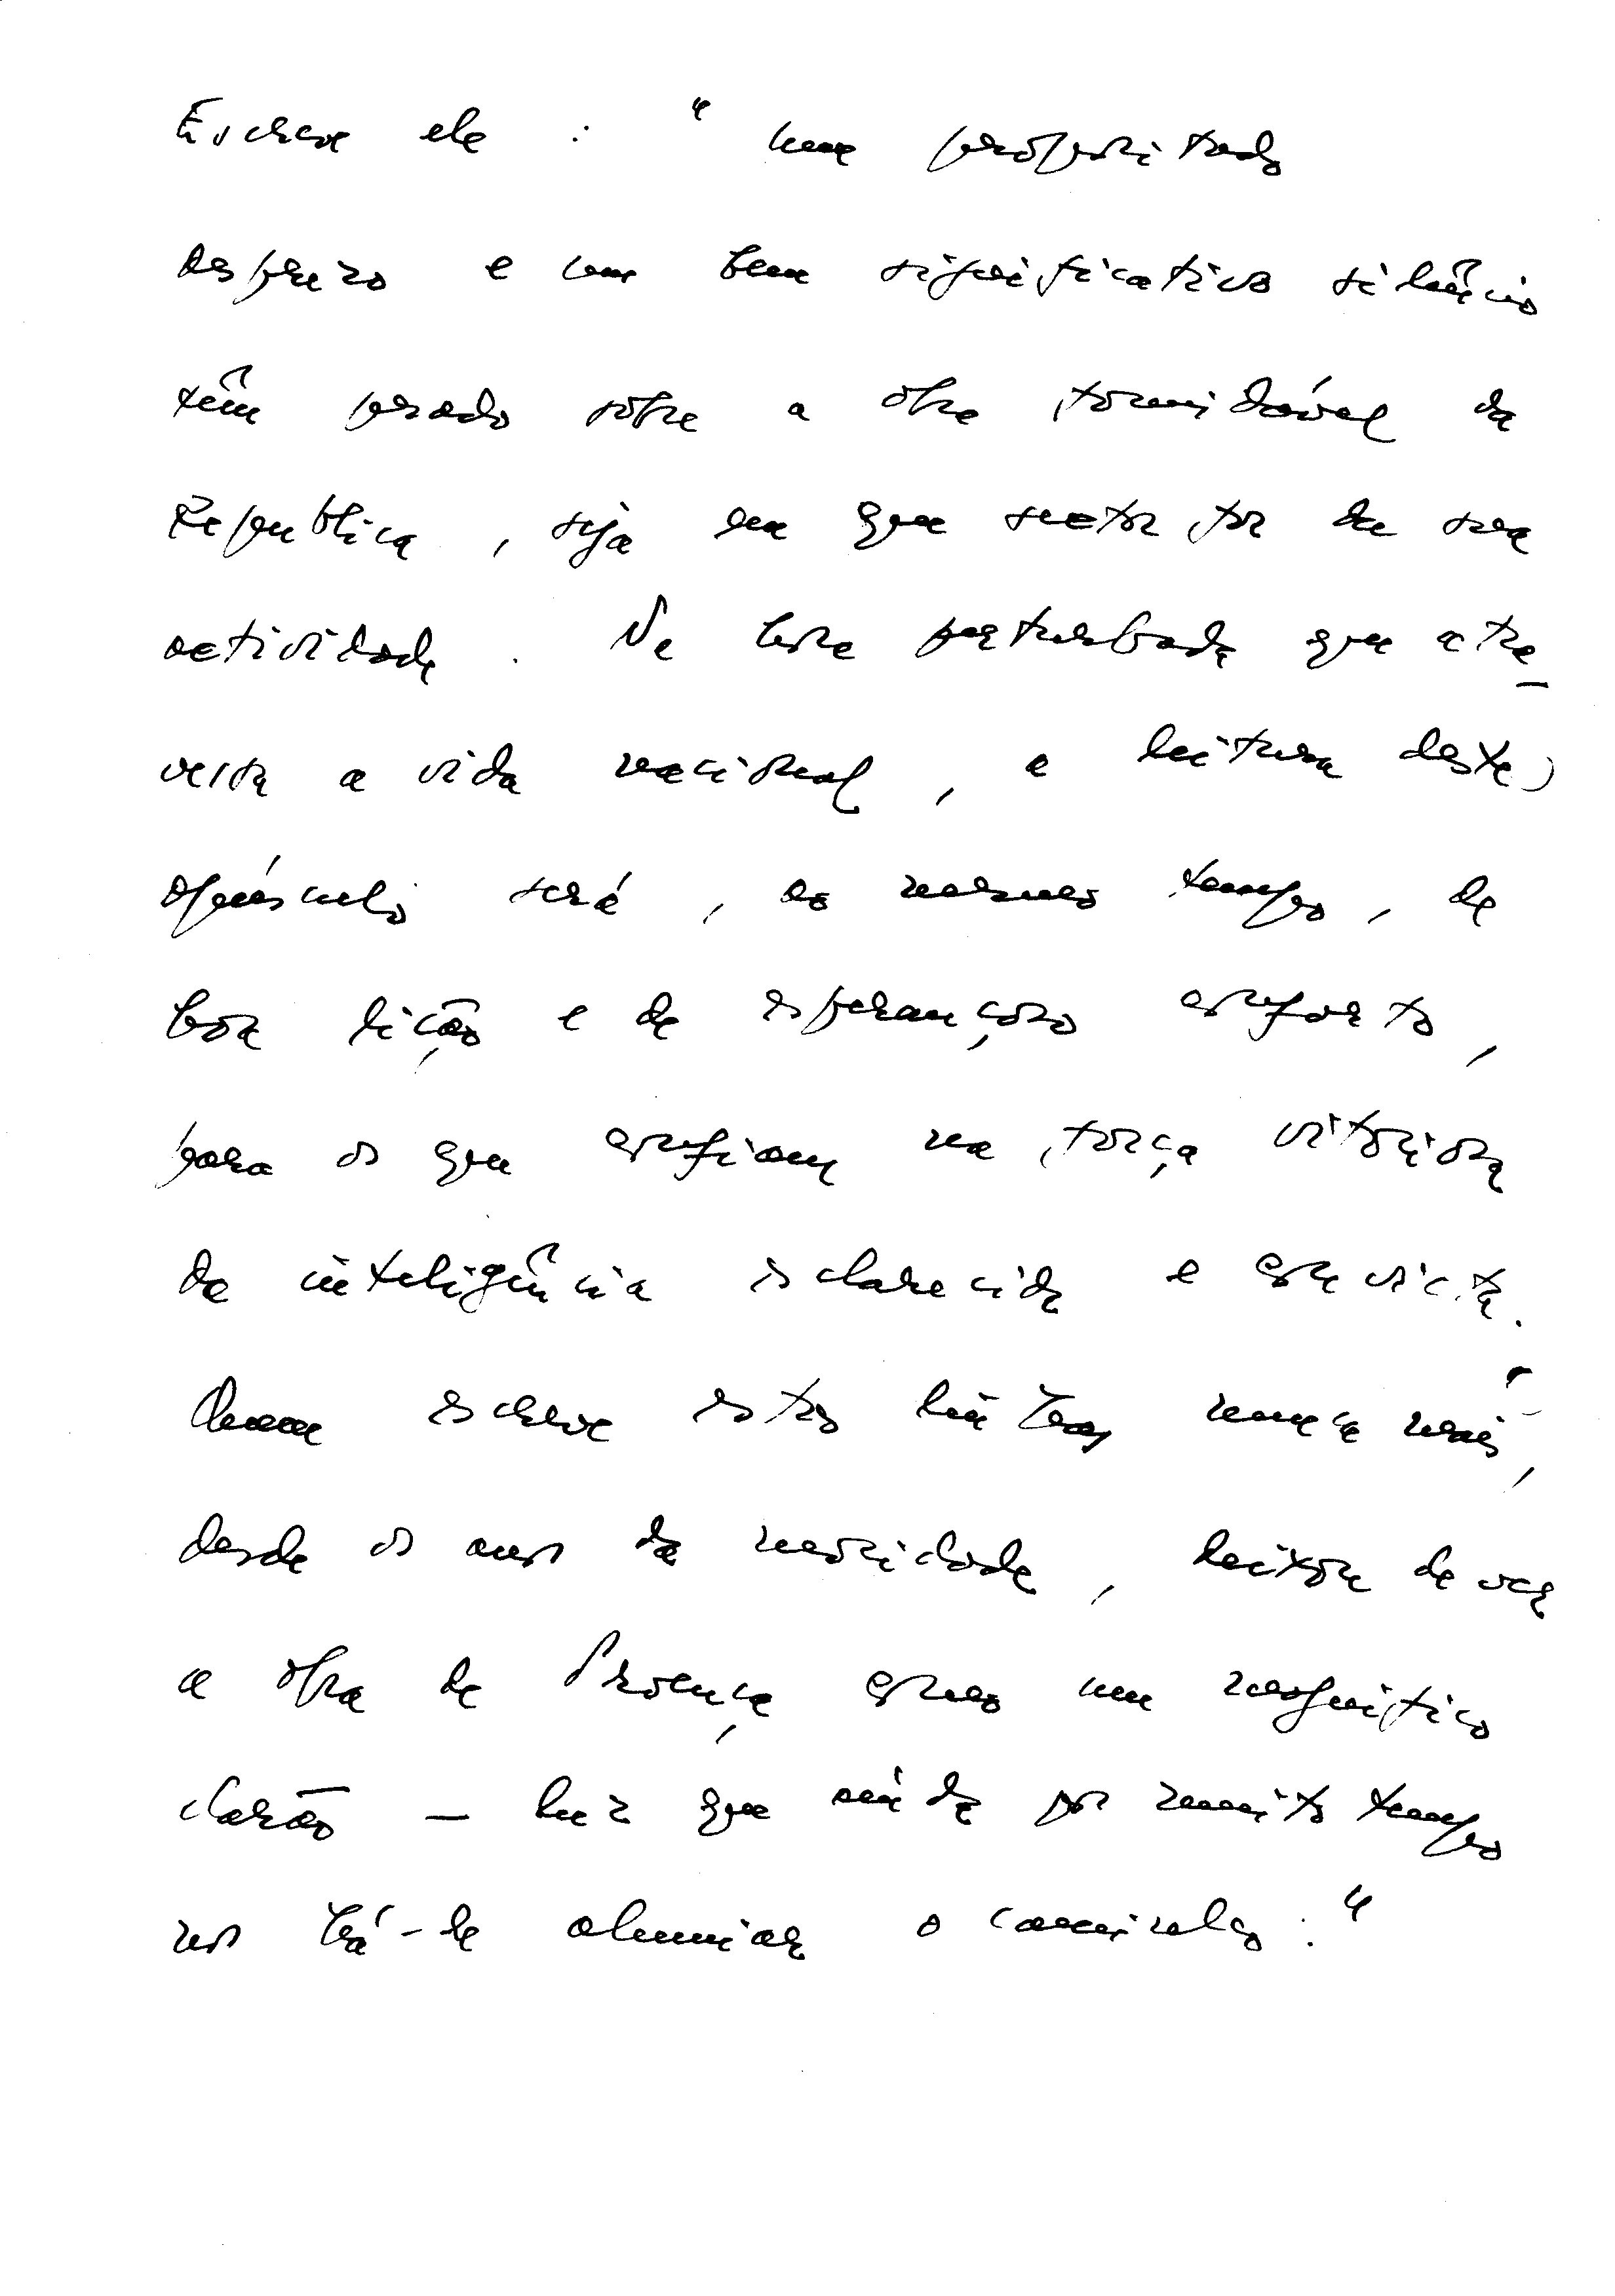 Escreve ele : " um propositado
desprezo e um bem significativo silêncio
têm pesado sobre a obra formidável da
Republica, seja em que sector for da sua
actividade. Na hora perturbada que atra-
vessa a vida nacional, a leitura deste
opúsculo será, ao mesmo tempo, de
boa lição e de esperançoso conforto,
para os que confiam na força vitoriosa
da inteligência esclarecida e convicta.
Quem escreve estas linhas nunca mais,
desde os anos da mocidade, deixou de ver
a obra de Proença como um magnífico
clarão - luz que ainda por muito tempo
nos há-de alumiar o caminho."